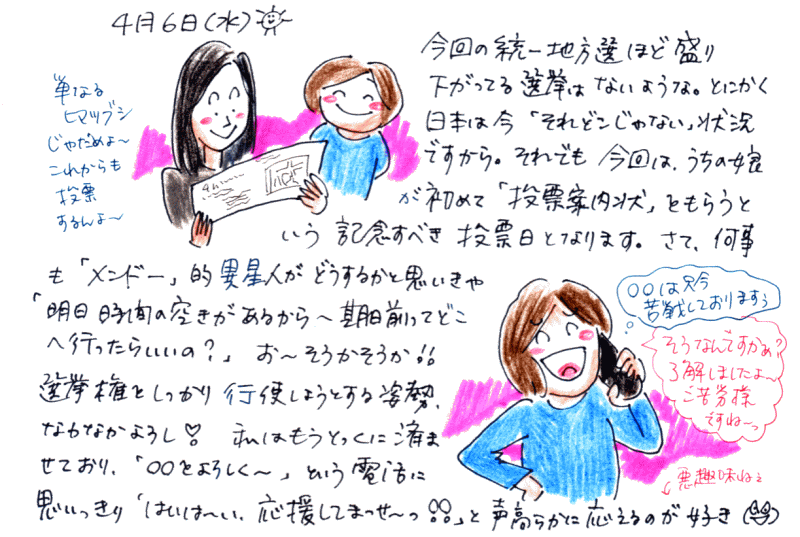 4月6日(水)
今回の統一地方選ほど盛り
下がってる選挙はないような。とにかく
日本は今「それどころじゃない」状況
ですから。それでも今回は、うちの娘
が初めて「投票案内状」をもらうと
いう記念すべき投票日となります。さて、何事
も「メンドー」的異星人がどうするかと思いきや
「明日時間の空きがあるから〜期日前ってどこ
へ行ったらいいの?」お〜そうかそうか!!
選挙権をしっかり行使しようとする姿勢、
なかなかよろし♡ 私はもうとっくに済ま
せており、「〇〇をよろしく〜」という電話に
思いっきり「はいは〜い、応援してまっせ〜っ!!」と声高らかに応えるのが好き
単なる
ヒマツブシ
じゃだめよ〜
これからも
投票
するんよ〜
〇〇は只今
苦戦しております
そうなんですかぁ?
了解しましたよ〜
ご苦労様
ですね〜っ
悪趣味ねぇ